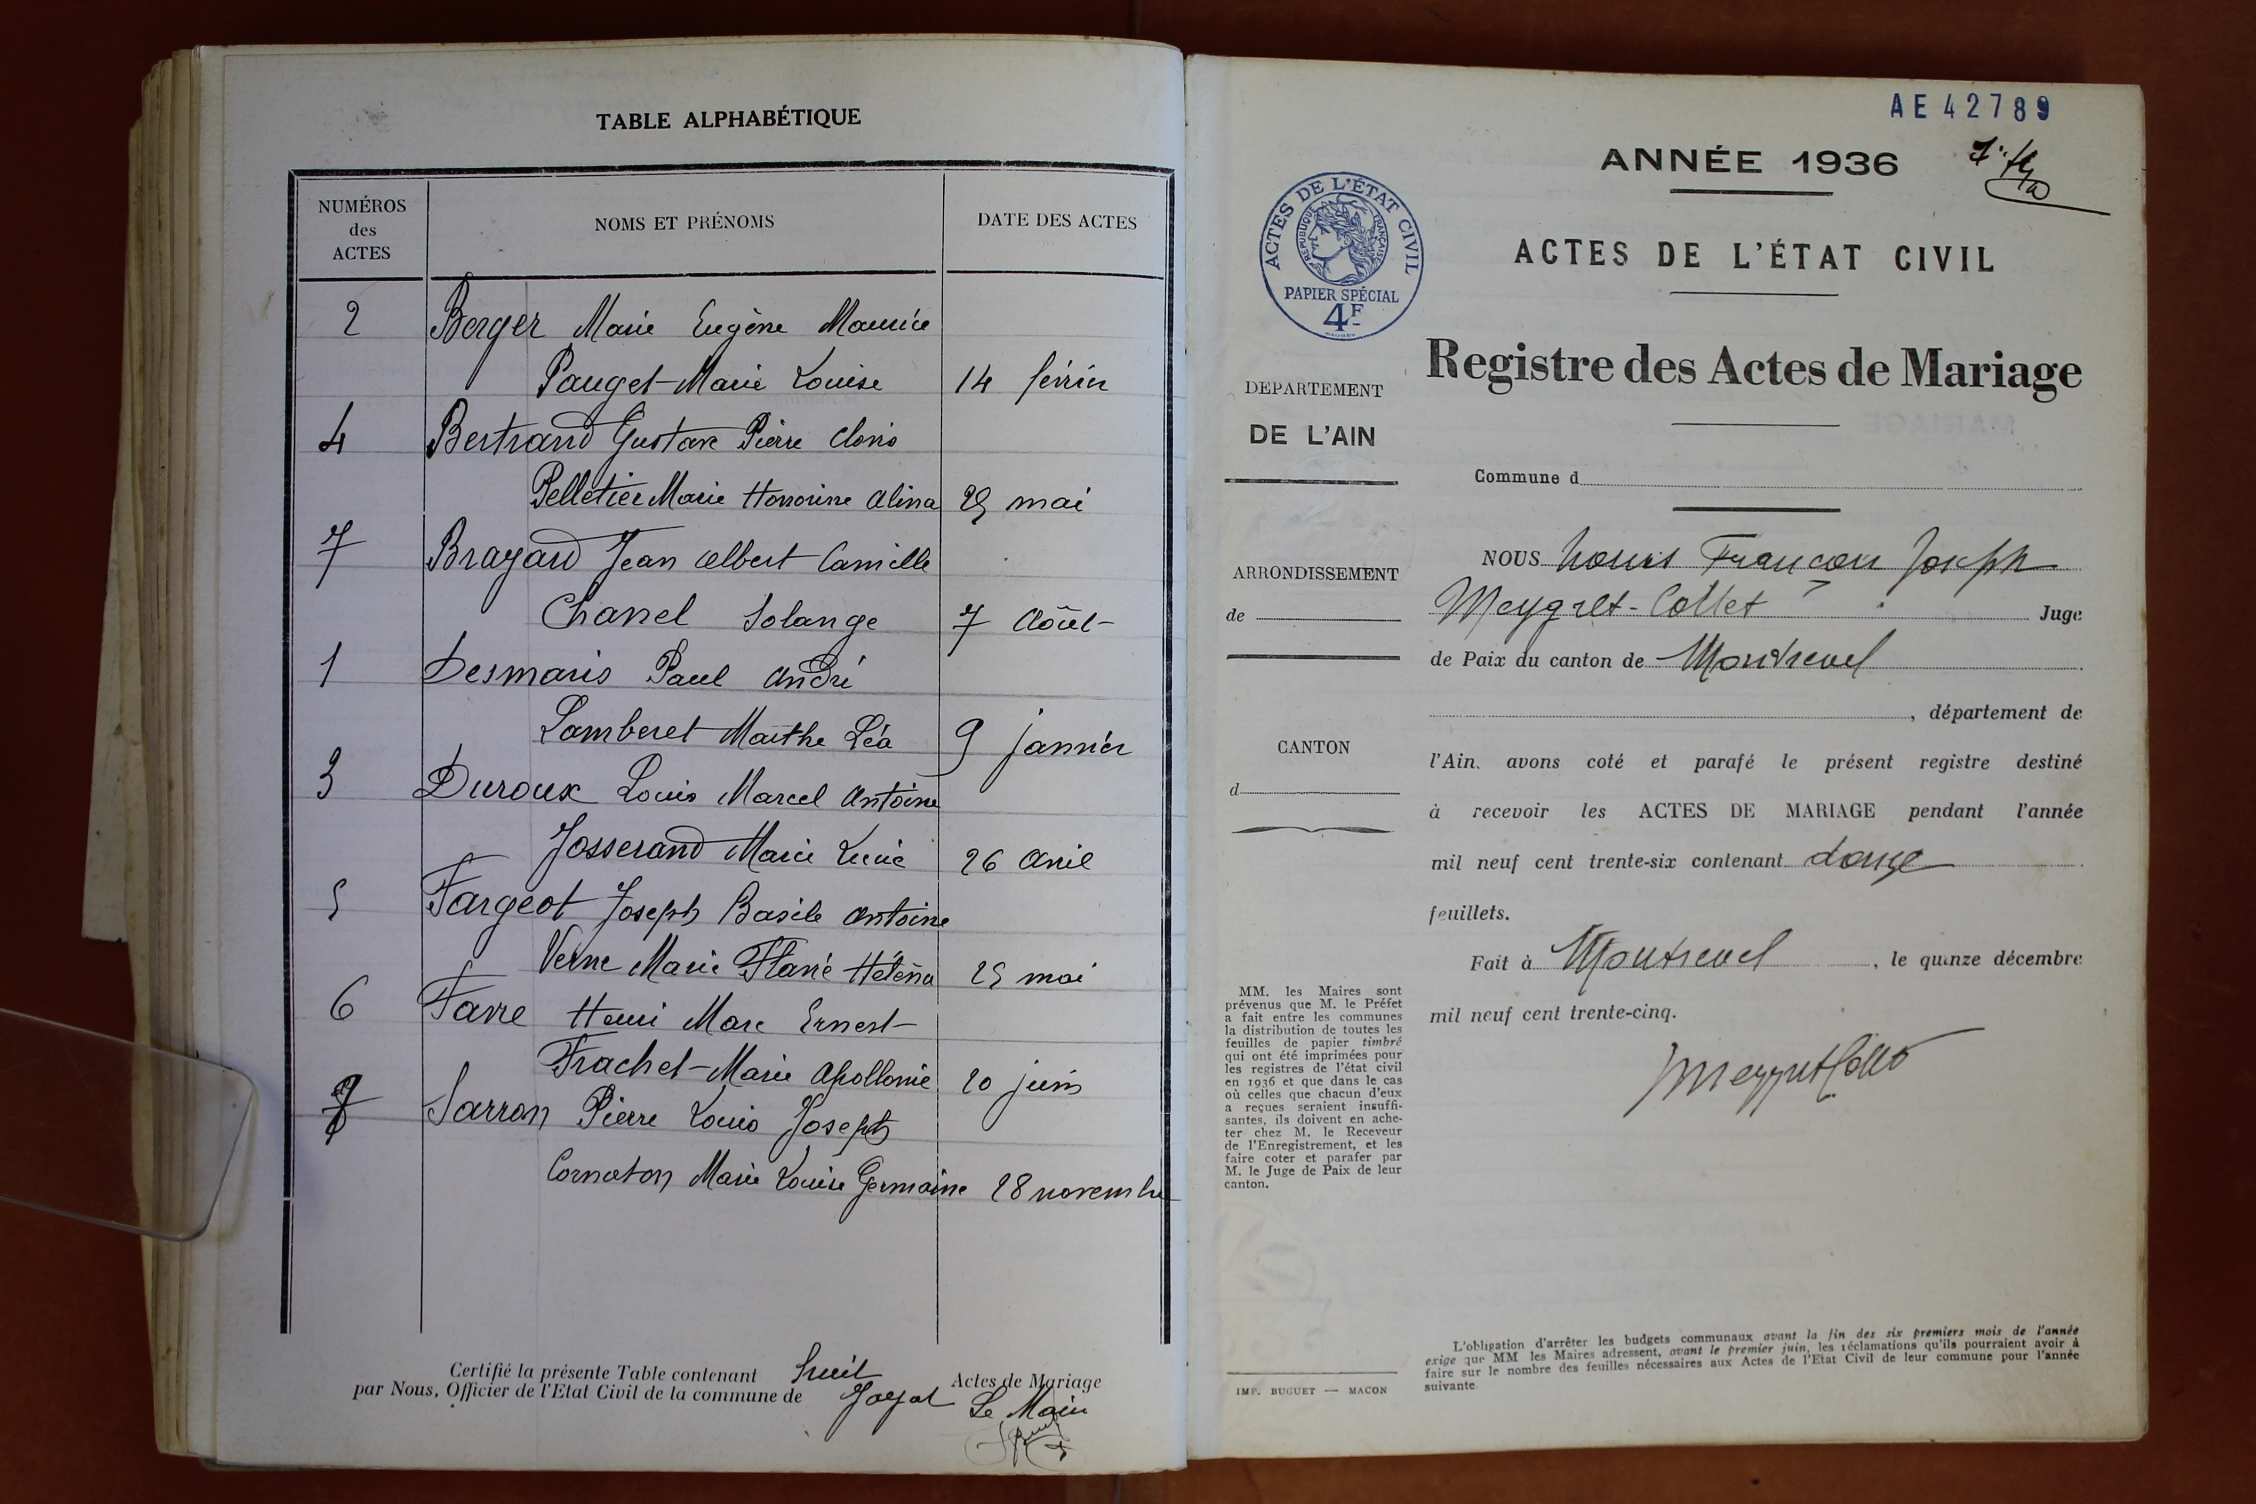 TABLE ALPHABÉTIQUE
NUMÉROS des ACTES
NOMS ET PRÉNOMS
DATE DES ACTES
2 Berger Marie Eugène Maurice
Pauget Marie Louise 14 février
4 Bertrand Gustave Pierre Clovis
Pelletier Marie Honorine Alina 25 mai
7 Brayard Jean Albert Camille
Chanel Solange 7 Août
1 Desmaris Paul André
Lamberet Marthe Léa 9 janvier
3 Duroux Louis Marcel Antoine
Josserand Marie Lucie 26 Avril
5 Fargeot Joseph Basile Antoine
Verne Marie Flavie Héléna 25 mai
6 Favre Henri Marc Ernest
Frachet Marie Apollonie 20 juin
Sarron Pierre Louis Joseph
Cornaton Marie Louise Germaine 28 novembre
Certifié la présente Table contenant huit Actes de Mariage
par Nous, Officier de l'Etat Civil de la commune de Jayat
Le Maire
AE42789
ANNÉE 1936
ACTES DE L'ÉTAT CIVIL
RÉPUBLIQUE FRANÇAISE
PAPIER SPÉCIAL
4F
ACTES DE L'ÉTAT CIVIL
Registre des Actes de Mariage
DEPARTEMENT
DE L'AIN
Commune d
ARRONDISSEMENT
de
CANTON
d
NOUS Louis François Joseph
Meygret-Collet Juge
de Paix du canton de Montrevel
, département de
l'Ain, avons coté et parafé le présent registre destiné
à recevoir les ACTES DE MARIAGE pendant l'année
mil neuf cent trente-six contenant douze
feuillets.
Fait à Montrevel, le quinze décembre
mil neuf cent trente-cinq.
MM. les Maires sont
prévenus que M. le Préfet
a fait entre les communes
la distribution de toutes les
feuilles de papier timbré
qui ont été imprimées pour
les registres de l'état civil
en 1936 et que dans le cas
où celles que chacun d'eux
a reçues seraient insuffi-
santes, ils doivent en ache-
ter chez M. le Receveur
de l'Enregistrement, et les
faire coter et parafer par
M. le Juge de Paix de leur
canton.
IMP. BUGUET — MACON
L'obligation d'arrêter les budgets communaux avant la fin des six premiers mois de l'année
exige que MM les Maires adressent, avant le premier juin, les réclamations qu'ils pourraient avoir à
faire sur le nombre des feuilles nécessaires aux Actes de l'Etat Civil de leur commune pour l'année
suivante